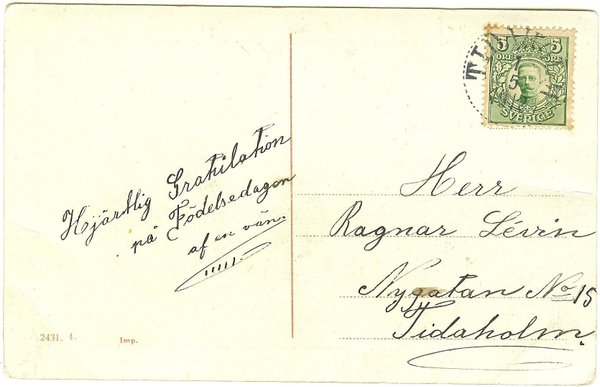 5 5
ÖRE ÖRE
SVERIGE
Hjärtlig Gratulation
på Födelsedagen
af en vän.
Herr
Ragnar Levin
Nygatan No 15
Tidaholm.
2431. 4.
Imp.